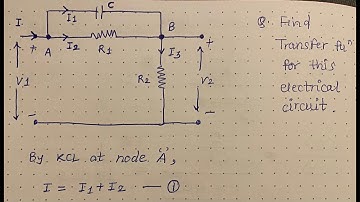 I I1 C
+ A I2 R1 B +
I3
V1 R2 V2
- -
Q. Find
Transfer fuⁿ
for this
electrical
circuit.
By KCL at node 'A',
I = I1 + I2 — ①